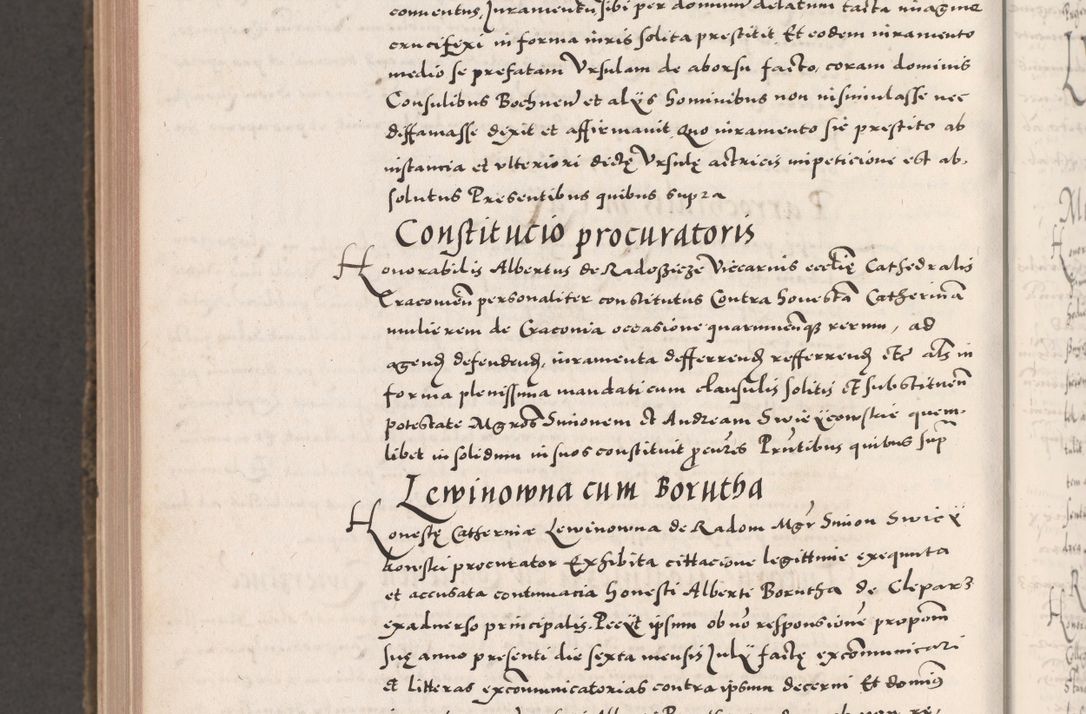 conuentus, Iuramentu sibi per dominum delatum tacta imagine
crucifixi in forma iuris solita prestitit Et eodem iuramento
medio se prefatam Vrsulam de aborsu facto, coram dominis
Consulibus Bochnen et alijs hominibus non insimulasse nec
diffamasse dixit et affirmauit Quo iuramento sic prestito ab
instancia et vlteriori dictę Vrsulę actricis impeticione est ab-
solutus Presentibus quibus supra
Constitucio procuratoris
Honorabilis Albertus de Radoszicze Viccarius ecclię Cathedralis
Cracouien personaliter constitutus Contra honestā Catherinā
mulierem de Cracouia occasione quarumcūq3 rerum, ad
agend defendend, iuramenta defferrend refferrend etc als in
forma plenissima mandati cum clausulis solitis et substituen
potestate Mgros Simonem et Andream Swieyconskie quem-
libet in solidum in suos constituit procures Pntibus quibus sup
Lewinowna cum Borutha
Honestę Catherinę Lewinowna de Radom Mgr Simon Swiey
konski procurator Exhibita cittacione legittime exequuta
et accusata contumacia honesti Alberti Borutha de Clepar3
ex aduerso principalis. Peeyt ipsum ob no responsione proponi
suę anno presenti die sexta mensis Iulij factę excommunicari
et litteras excommunicatorias contra ipsum decerni Et domis